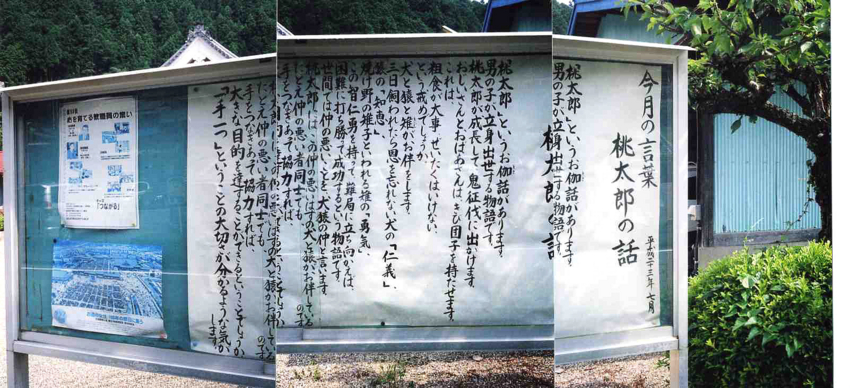 今月の言葉
桃太郎の話
平成二十三年 七月
桃太郎」というお伽話があります。
男の子が立身出世する物語です。
桃太郎が成長して鬼征伐に出かけます。
おじいさんとおばあさんはきび団子を持たせます。
これは
粗食が大事、ぜいたくはいけない、
という戒めでしょうか。
犬と猿と雉がお伴をします。
三日飼われたら恩を忘れない犬の「仁義」、
猿の「知恵」、
焼け野の雉子といわれる雉の「勇気」、
この智仁勇を持って、難局に立ち向かえば、
困難に打ち勝って成功するという物語です。
世間では仲の悪いことを「犬猿の仲」と言います。
桃太郎にはこの仲の悪いはずの犬と猿がお伴しているのです。
たとえ仲の悪い者同士でも、
手をつなぎあって協力すれば、
大きな目的を達することができるということでしょうか。
「手二つ」ということの大切さが分かるような気がします。
心を育てる教職員の集い
「つながる」